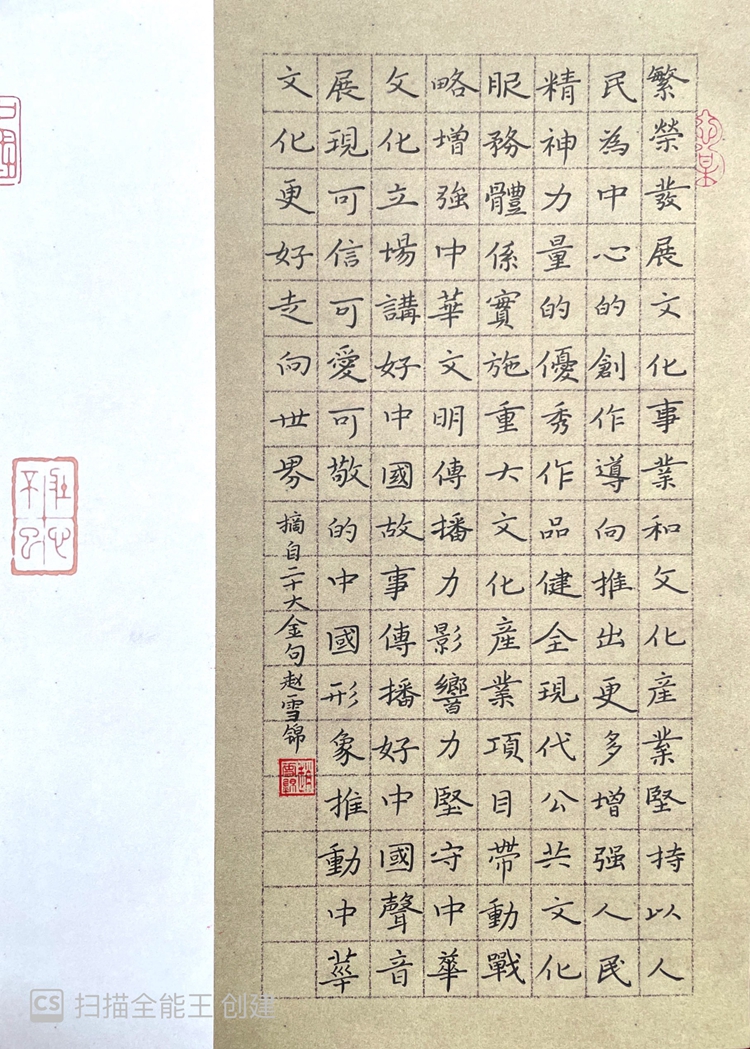 繁榮發展文化事業和文化産業堅持以人
民為中心的創作導向推出更多增强人民
精神力量的優秀作品健全現代公共文化
服務體係實施重大文化産業項目帶動戰
略增強中華文明傳播力影響力堅守中華
文化立場講好中國故事傳播好中國聲音
展現可信可愛可敬的中國形象推動中華
文化更好走向世界
摘自二十大金句赵雪锦
CS 扫描全能王 创建